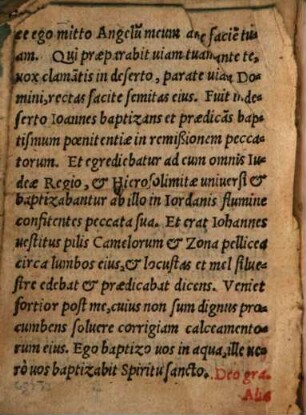 et ego mitto Angelũ meum ante faciẽ tu⸗
am. Qui præparabit uiam tuam ante te,
uox clamãtis in deserto, parate uiam Do⸗
mini, rectas facite semitas eius. Fuit in de⸗
serto Ioannes baptizans et prædicãs bap⸗
tismum pœnitentiæ in remißionem pecca⸗
torum. Et egrediebatur ad eum omnis Iu⸗
deæ Regio, & Hierosolimitæ uniuersi &
baptizabantur ab illo in Iordanis flumine
confitentes peccata sua. Et erat Iohannes
uestitus pilis Camelorum & Zona pellicea
circa lumbos eius, & locustas et mel silue⸗
stre edebat & prædicabat dicens. Veniet
fortior post me, cuius non sum dignus pro⸗
cumbens soluere corrigiam calceamento⸗
rum eius. Ego baptizo uos in aqua, ille ue⸗
rò uos baptizabit Spiritu sancto. Deo gra⸗
Alia